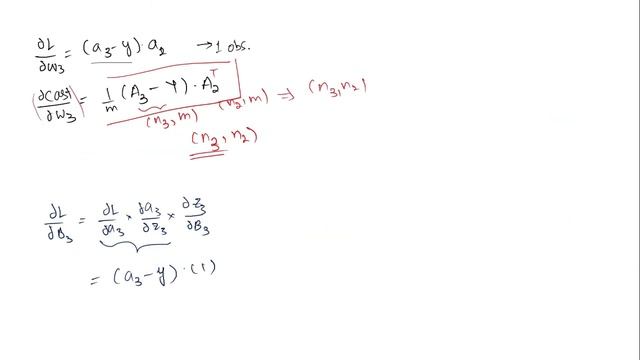 ∂L/∂w₃ = (a₃ - y) · a₂ → 1 obs.
(∂Cost/∂W₃) = 1/m (A₃ - Y) · A₂ᵀ
(n₃, m) (n₂, m) ⇒ (n₃, n₂)
(n₃, n₂)
∂L/∂B₃ = ∂L/∂a₃ × ∂a₃/∂z₃ × ∂z₃/∂B₃
= (a₃ - y) · (1)